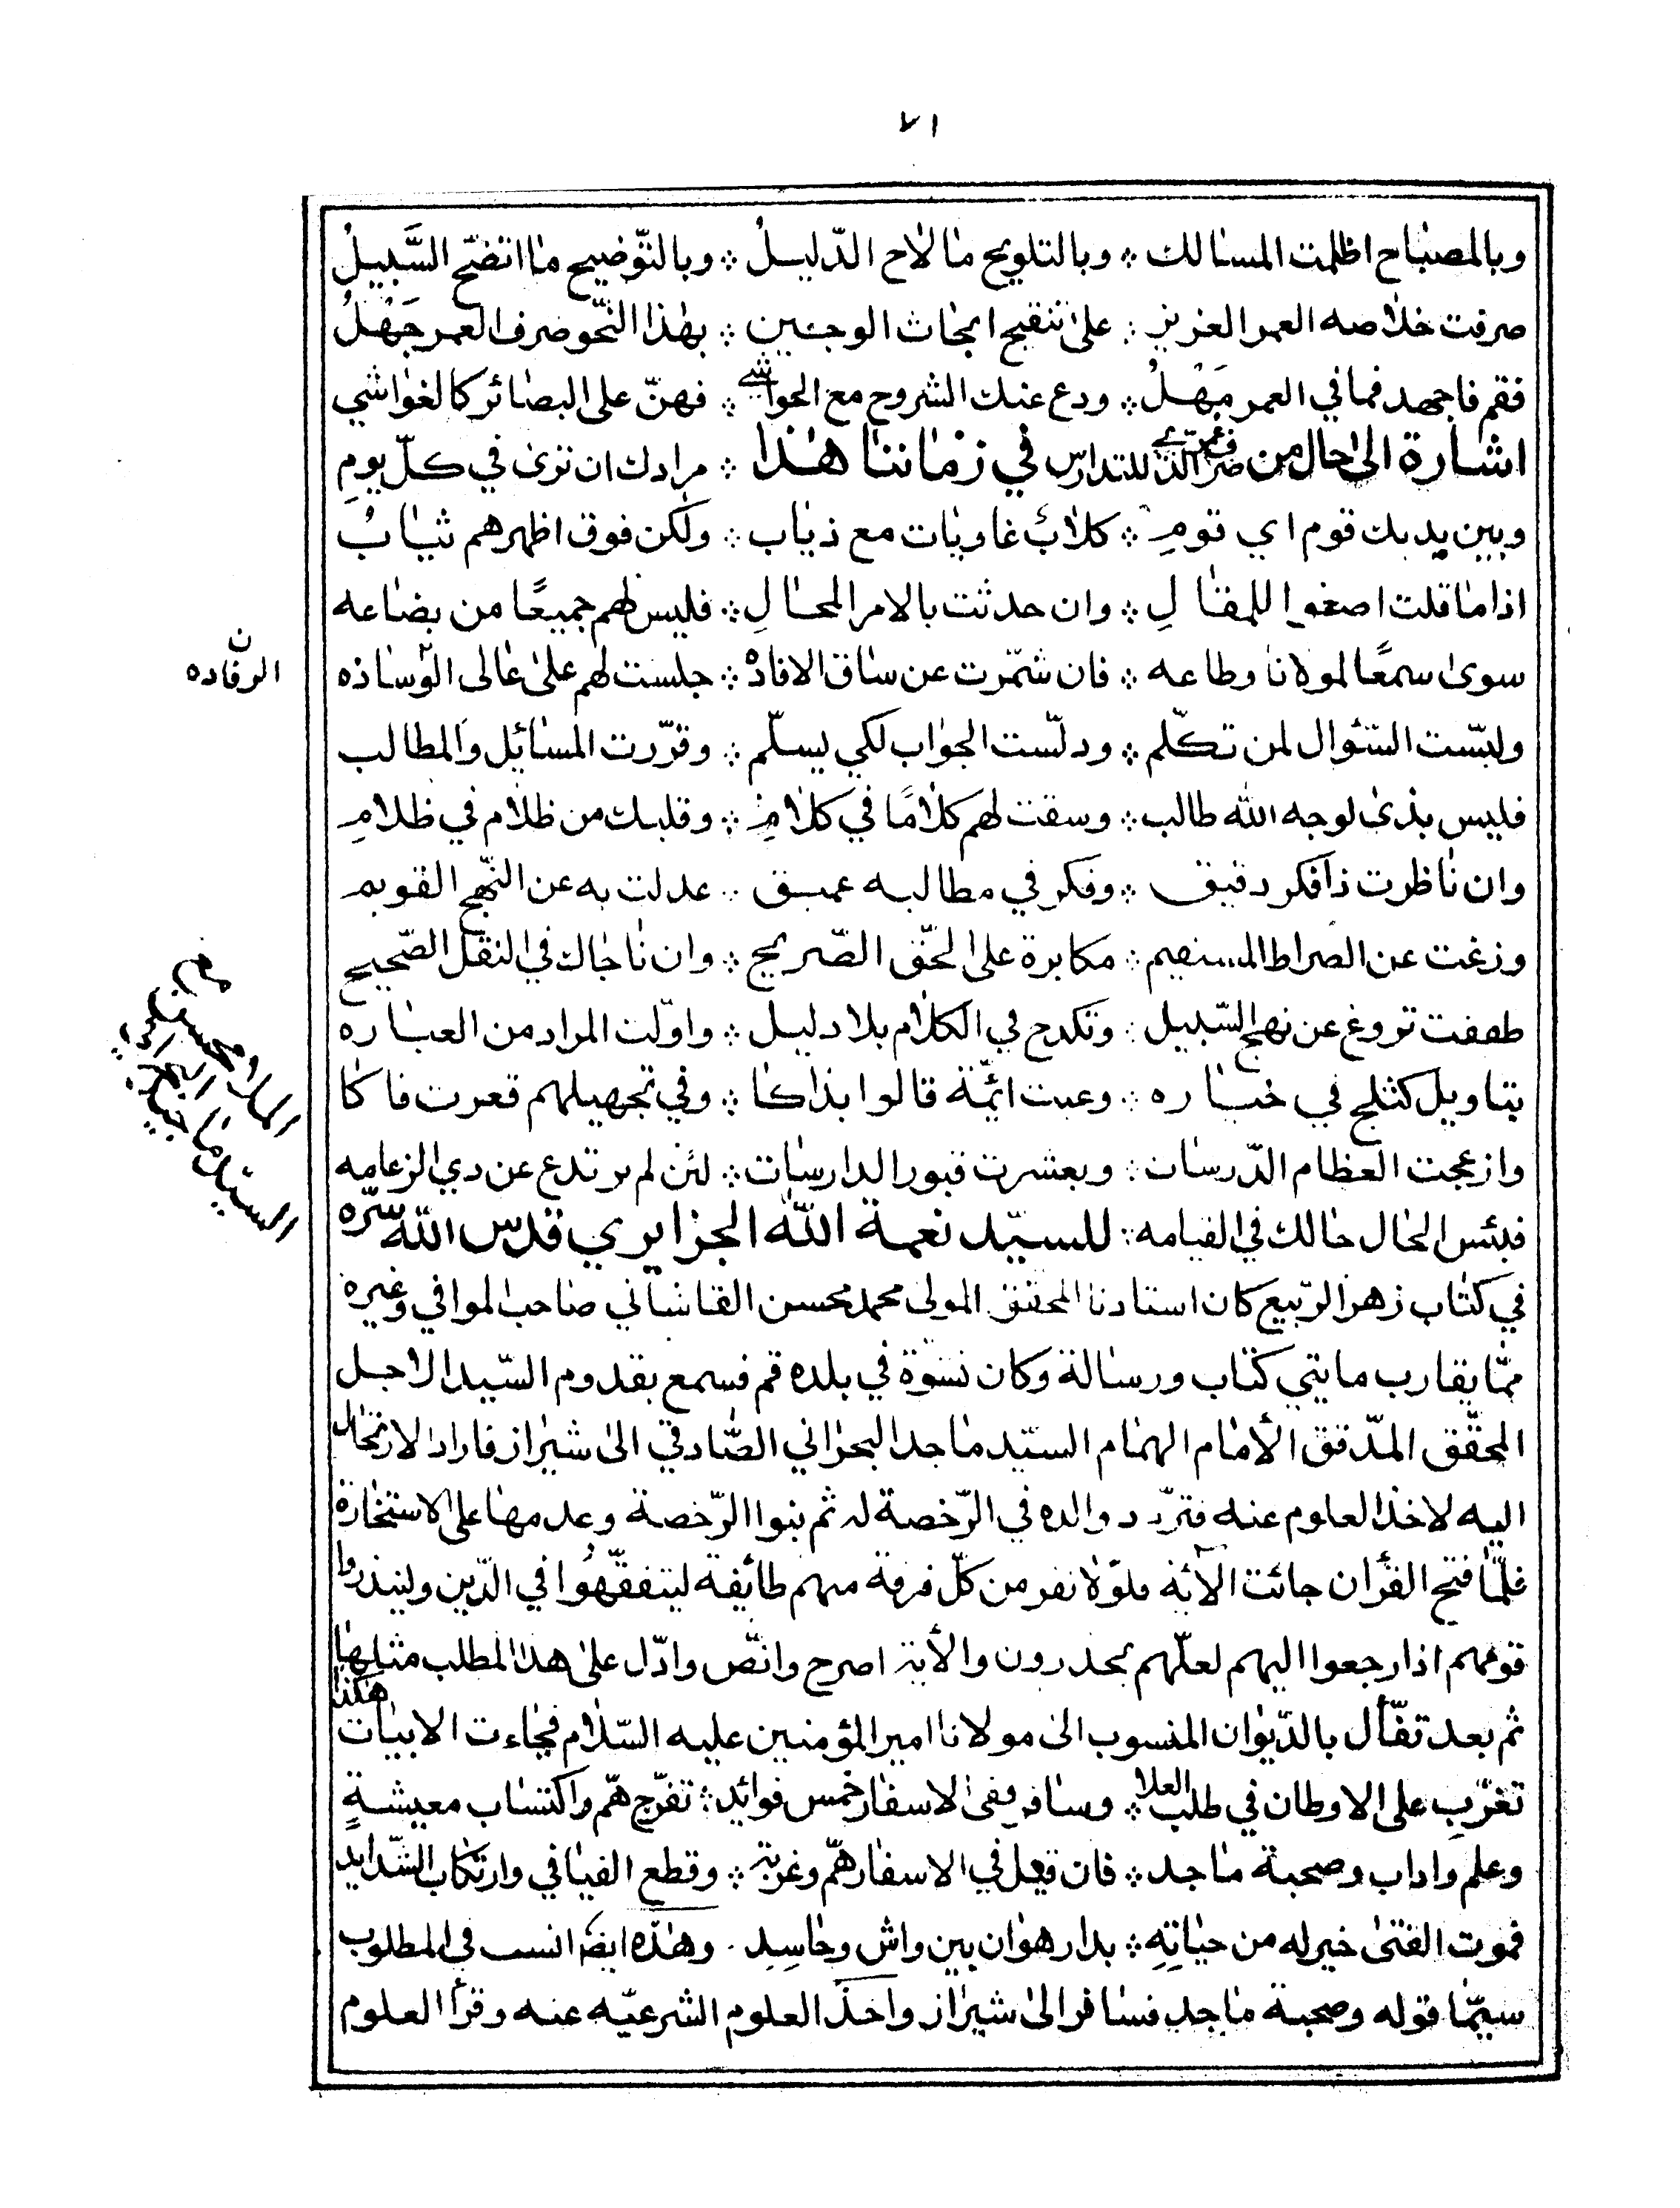 ٧١
وبالمصباح اظلمت المسالك ؞ وبالتلويح ما لاح الدّليلُ ؞ وبالتّوضيح ما اتضّح السَّبيلُ
صرفت خلاصه العمر العزيز ؞ على تنقيح ابحاث الوجيز ؞ بهذا النّحو صرف العمر جَهْلُ
فقم فاجهد فما في العمر مَهْلُ ؞ ودع عنك الشروح مع الحواشي ؞ فهنّ على البصائر كالغواشي
اشارة الى حال من للتدارس في زماننا هذا ؞ مرادك ان ترى في كلّ يومِ
وبين يديك قوم اي قومِ ؞ كلابٌ عاويات مع ذياب ؞ ولكن فوق اظهرهم ثيابُ
اذا ما قلت اصغوا للمقالِ ؞ وان حدثت بالامر المحالِ ؞ فليس لهم جميعًا من بضاعه
سوى سمعًا لمولانا وطاعه ؞ فان شمّرت عن ساق الافادهْ ؞ جلست لهم على عالى الوّساده
ن
الرفاده
ولبّست السّئوال لمن تكلّم ؞ ودلّست الجواب لكي يسلّم ؞ وقرّرت المسائل والمطالب
فليس بذى لوجه الله طالب ؞ وسقت لهم كلامًا في كلامِ ؞ وقلبك من ظلام في ظلامِ
وان ناظرت ذا فكر دقيق ؞ وفكر في مطالبه عميق ؞ عدلت به عن النّهج القويم
وزغت عن الصراط المستقيم ؞ مكابرة على الحقّ الصّريح ؞ وان ناجاك في النقل الصّحيح
طفقت تروغ عن نهج السّبيل ؞ وتكدح في الكلام بلا دليل ؞ واوّلت المراد من العباره
بتاويل كثلج في خياره ؞ وعبت ائمّة قالوا بذاكا ؞ وفي تجهيلهم قعرت فاكا
وازعجت العظام الدّرسات ؞ وبعثرت قبور الدارسات ؞ لئن لم يرتدع عن دي الزعامه
فبئس الحال حالك في القيامه ؞ للسيّد نعمة الله الجزايري قدّس الله سّره
في كتاب زهر الرّبيع كان استادنا المحقق المولى محمد محسن القاشاني صاحب الموافي وغيره
ممّا يقارب مايتي كتاب ورسالة وكان نشوة في بلده قم فسمع بقدوم السّيد الاجل
المحقّق المدّقق الأمام الهمام السيّد ماجد البحراني الصّادقي الى شيراز فاراد الارتحال
اليه لاخذ العلوم عنه فتردّد والده في الرّخصة له ثم بنوا الرّخصة وعدمها على الاستخارة
فلمّا فتح القرأن جائت الآيه فلوّلا نفر من كلّ فرقة منهم طائفة ليتفقّهُوا في الدّين ولينذروا
قومهم اذا رجعوا اليهم لعلّهم يحذرون والأية اصرح وانّص وادّل على هذا المطلب مثلها
ثم بعد تفّأل بالدّيوان المنسوب الى مولانا امير المؤمنين عليه السّلام فجاءت الابيات هكذا
تغرّب على الاوطان في طلب العلا ؞ وسافر ففى الاسفار خمس فوائد ؞ تفرّج همّ واكتساب معيشةٍ
وعلم واداب وصحبة ماجد ؞ فان قيل في الاسفار همّ وغربة ؞ وقطع الفيافي وارتكاب الشّدايد
فموت الفتى خير له من حياتِهِ ؞ بدار هوان بين واش وحاسِدِ . وهذه ايضا انسب في المطلوب
سيمّا قوله وصحبة ماجد فسافر الى شيراز واخذ العلوم الشرعيّه عنه وقرأ العلوم